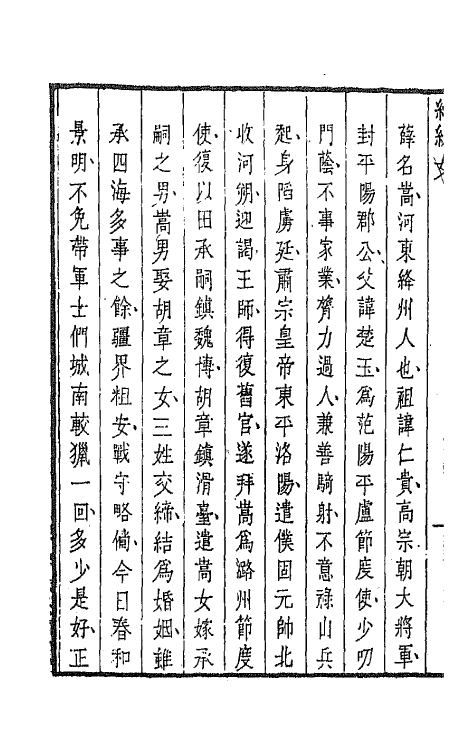 紅線女
一
薛名嵩、河東絳州人也、祖諱仁貴、高宗朝大將軍、
封平陽郡公、父諱楚玉、爲范陽平盧節度使、少叨
門蔭、不事家業、膂力過人、兼善騎射、不意祿山兵
起、身陷虜廷、肅宗皇帝東平洛陽、遣僕固元帥北
收河朔、迎謁王師、得復舊官、遂拜嵩爲潞州節度
使、復以田承嗣鎮魏博、胡章鎮滑臺、遣嵩女嫁承
嗣之男、嵩男娶胡章之女、三姓交締、結爲婚姻、雖
承四海多事之餘、疆界粗安、戰守略備、今日春和
景明、不免帶軍士們城南較獵一回、多少是好、正